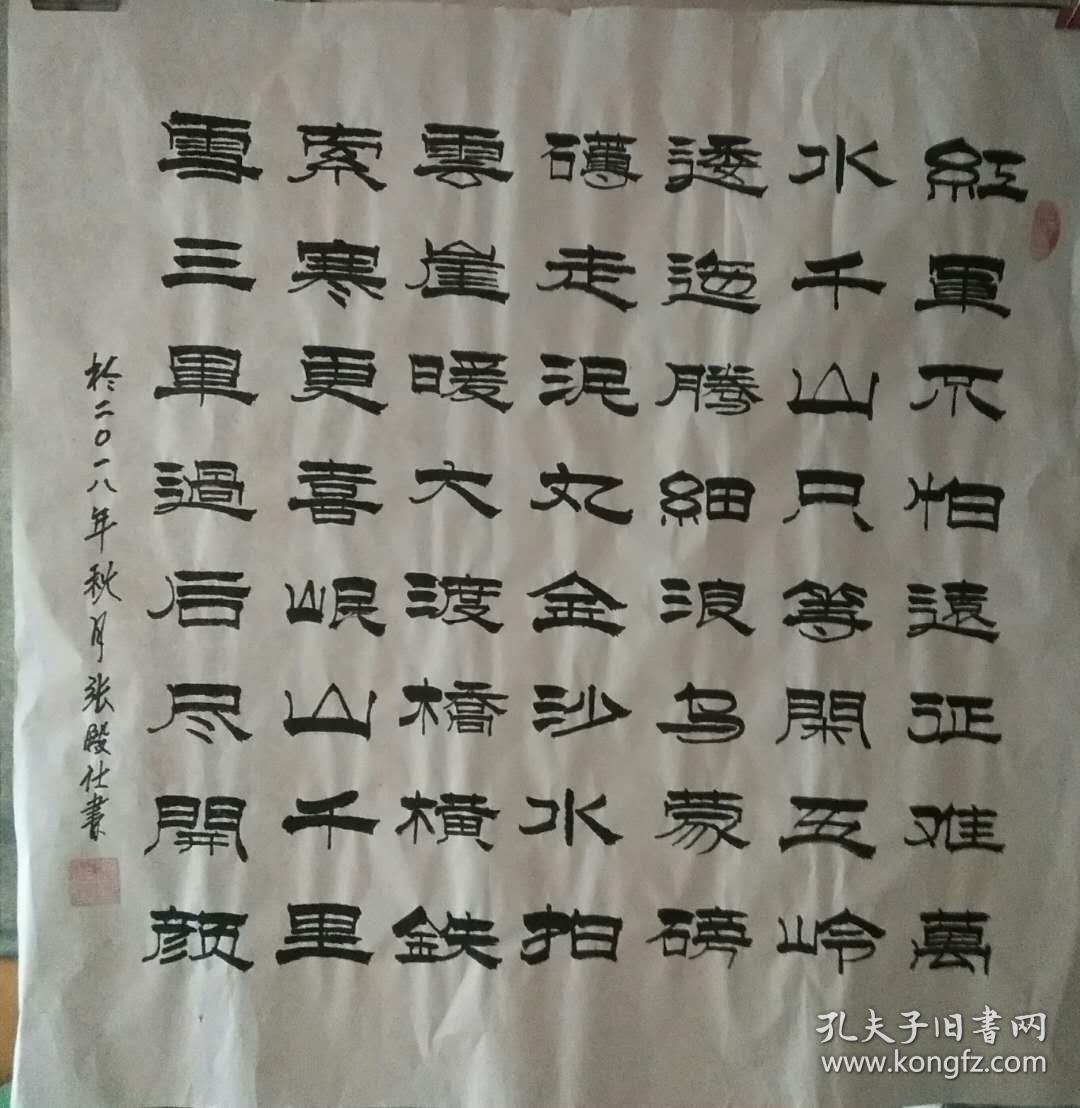 紅軍不怕遠征难萬
水千山只等閑五岭
逶迤腾細浪乌蒙磅
礴走泥丸金沙水拍
雲崖暖大渡橋横鉄
索寒更喜岷山千里
雪三軍過后尽開颜
於二〇一八年秋月张殿仕書
孔夫子旧書网
www.kongfz.com